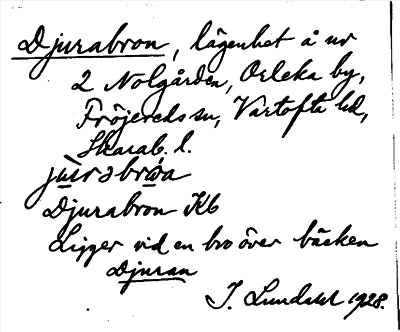 Djurabron, lägenhet å nr
2 Nolgården, Orleka by,
Fröjereds sn, Vartofta hd,
Skarab. l.
jùrəbrǿa
Djurabron Kb
Ligger vid en bro över bäcken
Djuran
I. Lundahl 1928.